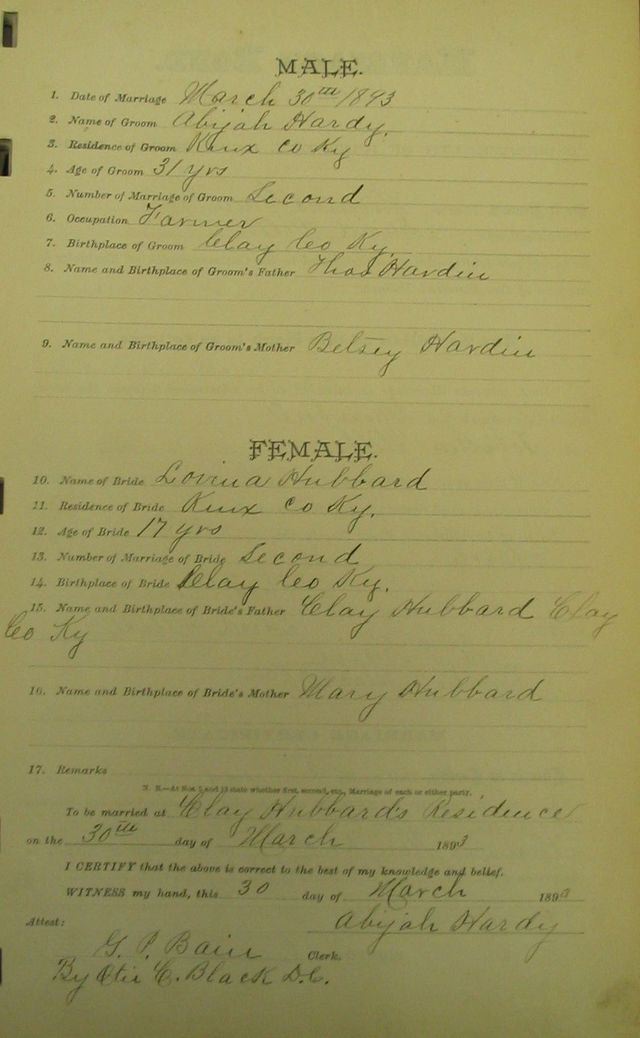 MALE.
1. Date of Marriage March 30th 1893
2. Name of Groom Abijah Hardy.
3. Residence of Groom Knx Co Ky
4. Age of Groom 31 yrs
5. Number of Marriage of Groom Second
6. Occupation Farmer
7. Birthplace of Groom Clay Co Ky.
8. Name and Birthplace of Groom's Father Thos Hardin
9. Name and Birthplace of Groom's Mother Betsey Hardin
FEMALE.
10. Name of Bride Lovina Hubbard
11. Residence of Bride Knx Co Ky.
12. Age of Bride 17 yrs
13. Number of Marriage of Bride Second
14. Birthplace of Bride Clay Co Ky.
15. Name and Birthplace of Bride's Father Clay Hubbard Clay
Co Ky
16. Name and Birthplace of Bride's Mother Mary Hubbard
17. Remarks
N. B.—At Nos 5 and 13 state whether first, second, etc., Marriage of each or either party.
To be married at Clay Hubbards Residence
on the 30th day of March 1893
I CERTIFY that the above is correct to the best of my knowledge and belief.
WITNESS my hand, this 30 day of March 189
Abijah Hardy
Attest:
G. P. Bain Clerk.
By C. Black D.C.